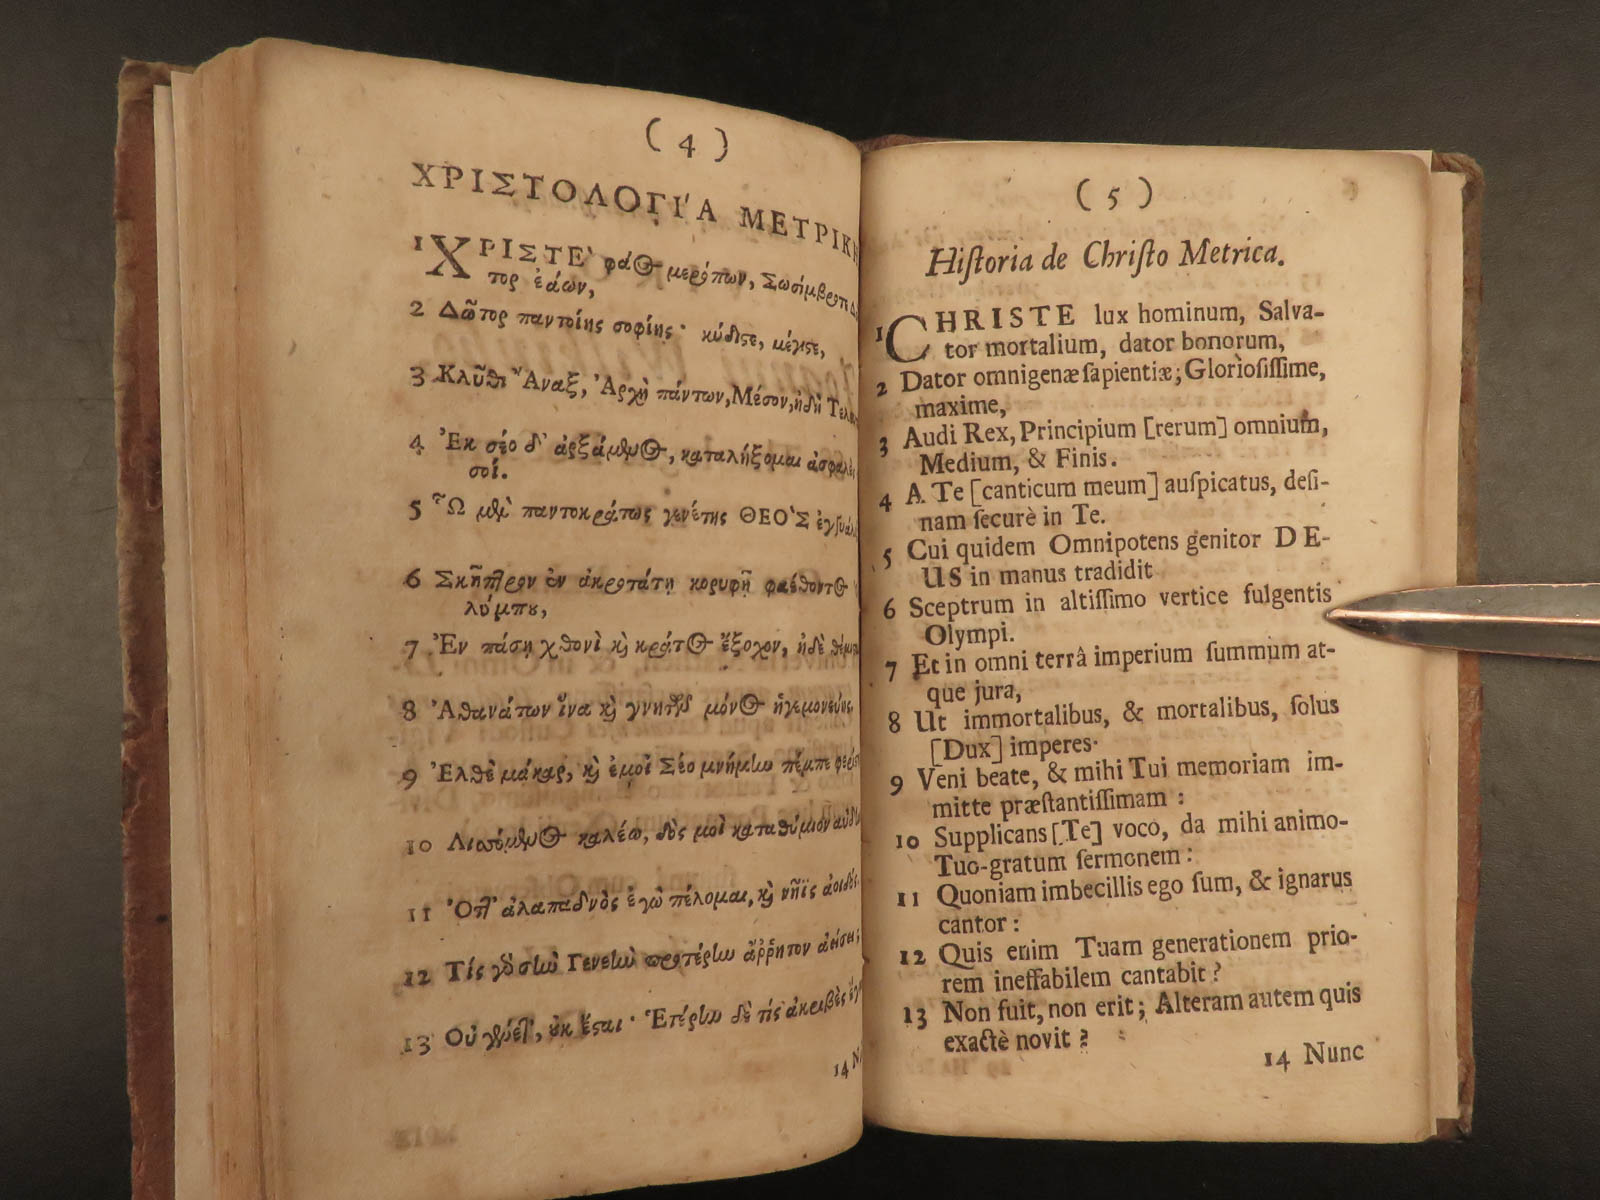 ( 4 )
ΧΡΙΣΤΟΛΟΓΙ'Α ΜΕΤΡΙΚ
1 ΧΡΙΣΤΕ` φάος μερόπων, Σωσίμβροτε
τορ ἐάων,
2 Δῶτορ παντοίης σοφίης· κύδιστε, μέγιστε,
3 Κλῦθι Ἄναξ, Ἀρχὴ πάντων, Μέσον, ἠδὴ
4 Ἐκ σέο δ' ἀρξάμενος, καταλήξομαι
σοί.
5 Ὧ μὲν παντοκράτωρ γενέτης ΘΕΟ`Σ
6 Σκῆπτρον ἐν ἀκροτάτῃ κορυφῇ φαέθοντος
λύμπου,
7 Ἐν πάσῃ χθονὶ καὶ κράτος ἔξοχον, ἠδὲ
8 Ἀθανάτων ἵνα καὶ γνητῶν μόνος ἡγεμονεύῃς
9 Ἐλθὲ μάκαρ, καὶ ἐμοὶ Σέο μνήμην πέμπε
10 Λισσόμενος καλέω, δὸς μοὶ καταθύμιον
11 Ὅττ' ἀλαπαδνὸς ἐγὼ πέλομαι, καὶ νῆϊς ἀοιδός.
12 Τίς γὸ σὴν Γενεὴν προτέρην ἄῤῥητον ἀείσει;
13 Οὐ γένετ', οὐκ ἔσται· Ἑτέρην δὲ τίς ἀκριβὲς
14 Ν
( 5 )
Hiſtoria de Chriſto Metrica.
1 CHRISTE lux hominum, Salva-
tor mortalium, dator bonorum,
2 Dator omnigenæ ſapientiæ; Glorìoſiſſime,
maxime,
3 Audi Rex, Principium [rerum] omnium,
Medium, & Finis.
4 A Te [canticum meum] auſpicatus, deſi-
nam ſecurè in Te.
5 Cui quidem Omnipotens genitor DE-
US in manus tradidit
6 Sceptrum in altiſſimo vertice fulgentis
Olympi.
7 Et in omni terrâ imperium ſummum at-
que jura,
8 Ut immortalibus, & mortalibus, ſolus
[Dux] imperes·
9 Veni beate, & mihi Tui memoriam im-
mitte præſtantiſſimam :
10 Supplicans [Te] voco, da mihi animo-
Tuo-gratum ſermonem :
11 Quoniam imbecillis ego ſum, & ignarus
cantor :
12 Quis enim Tuam generationem prio-
rem ineffabilem cantabit ?
13 Non fuit, non erit; Alteram autem quis
exactè novit ?
14 Nunc